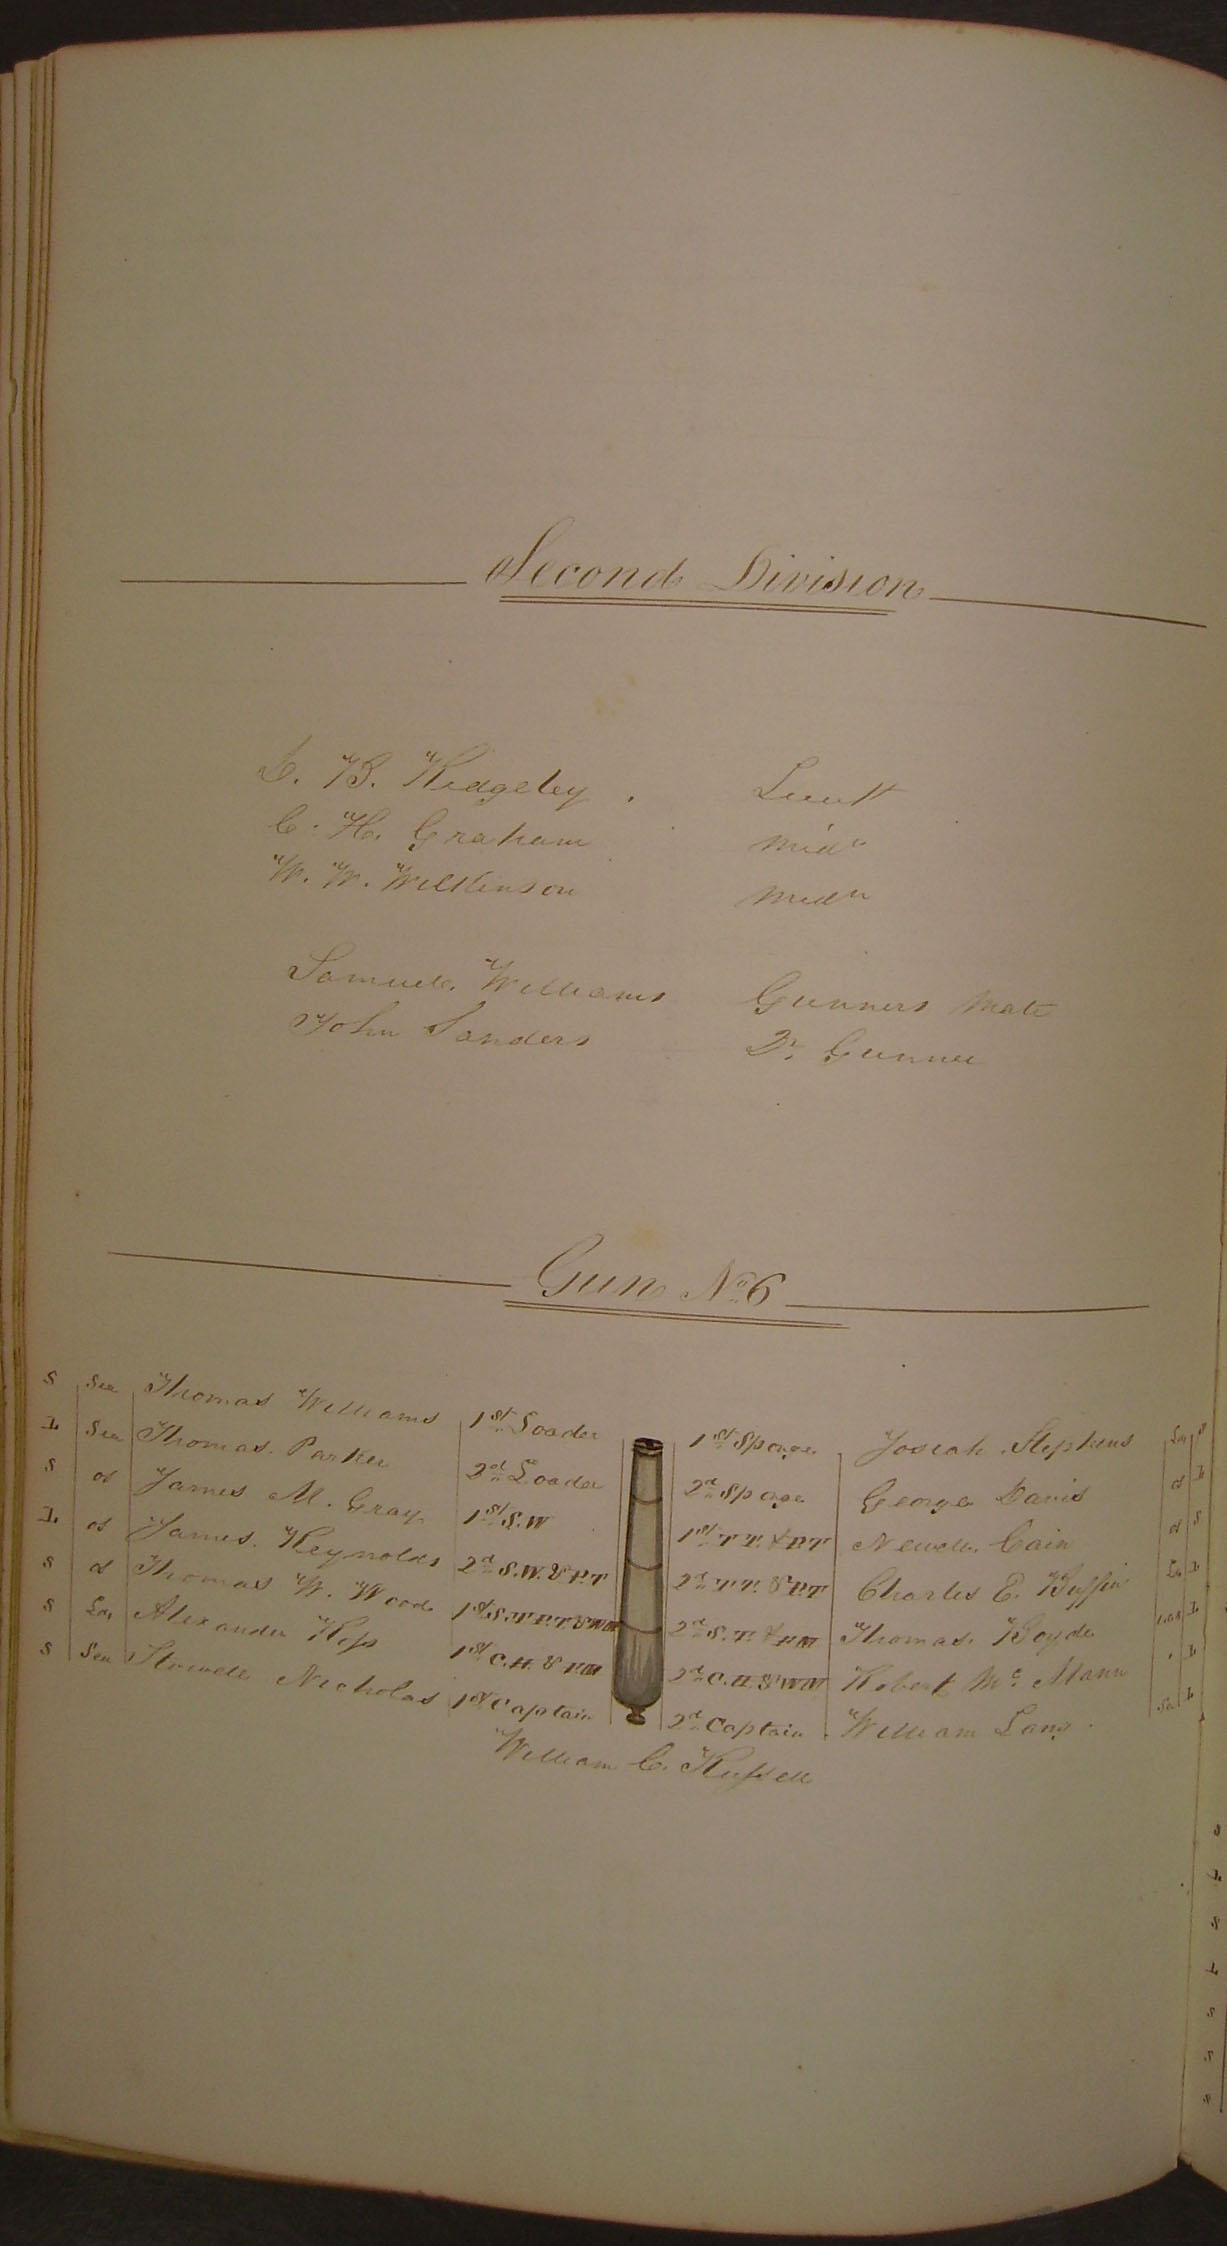 Second Division
B. Ridgeley. Lieut
C. H. Graham Mid
W. W. Wilkinson Midn
Samuel Williams Gunners Mate
John Sanders Gunner
Gun No 6
S Sea Thomas Williams 1st Loader 1st Sponge Josiah Stephens S
L Sea Thomas Parker 2d Loader 2d Sponge George Davis L
S James M. Gray 1st S.W 1st T.T. & P.T Newell Cain S
L James Reynolds 2d S.W. & P.T 2d T.T. & P.T Charles E. L
S Thomas W. Wood 1st 2d Thomas Boyde L
S Alexander Hess 1st C.H. & 2d C.H. & Robert Mc Mann L
S Sea Nicholas 1st Captain 2d Captain William Lang L
William C. Russell